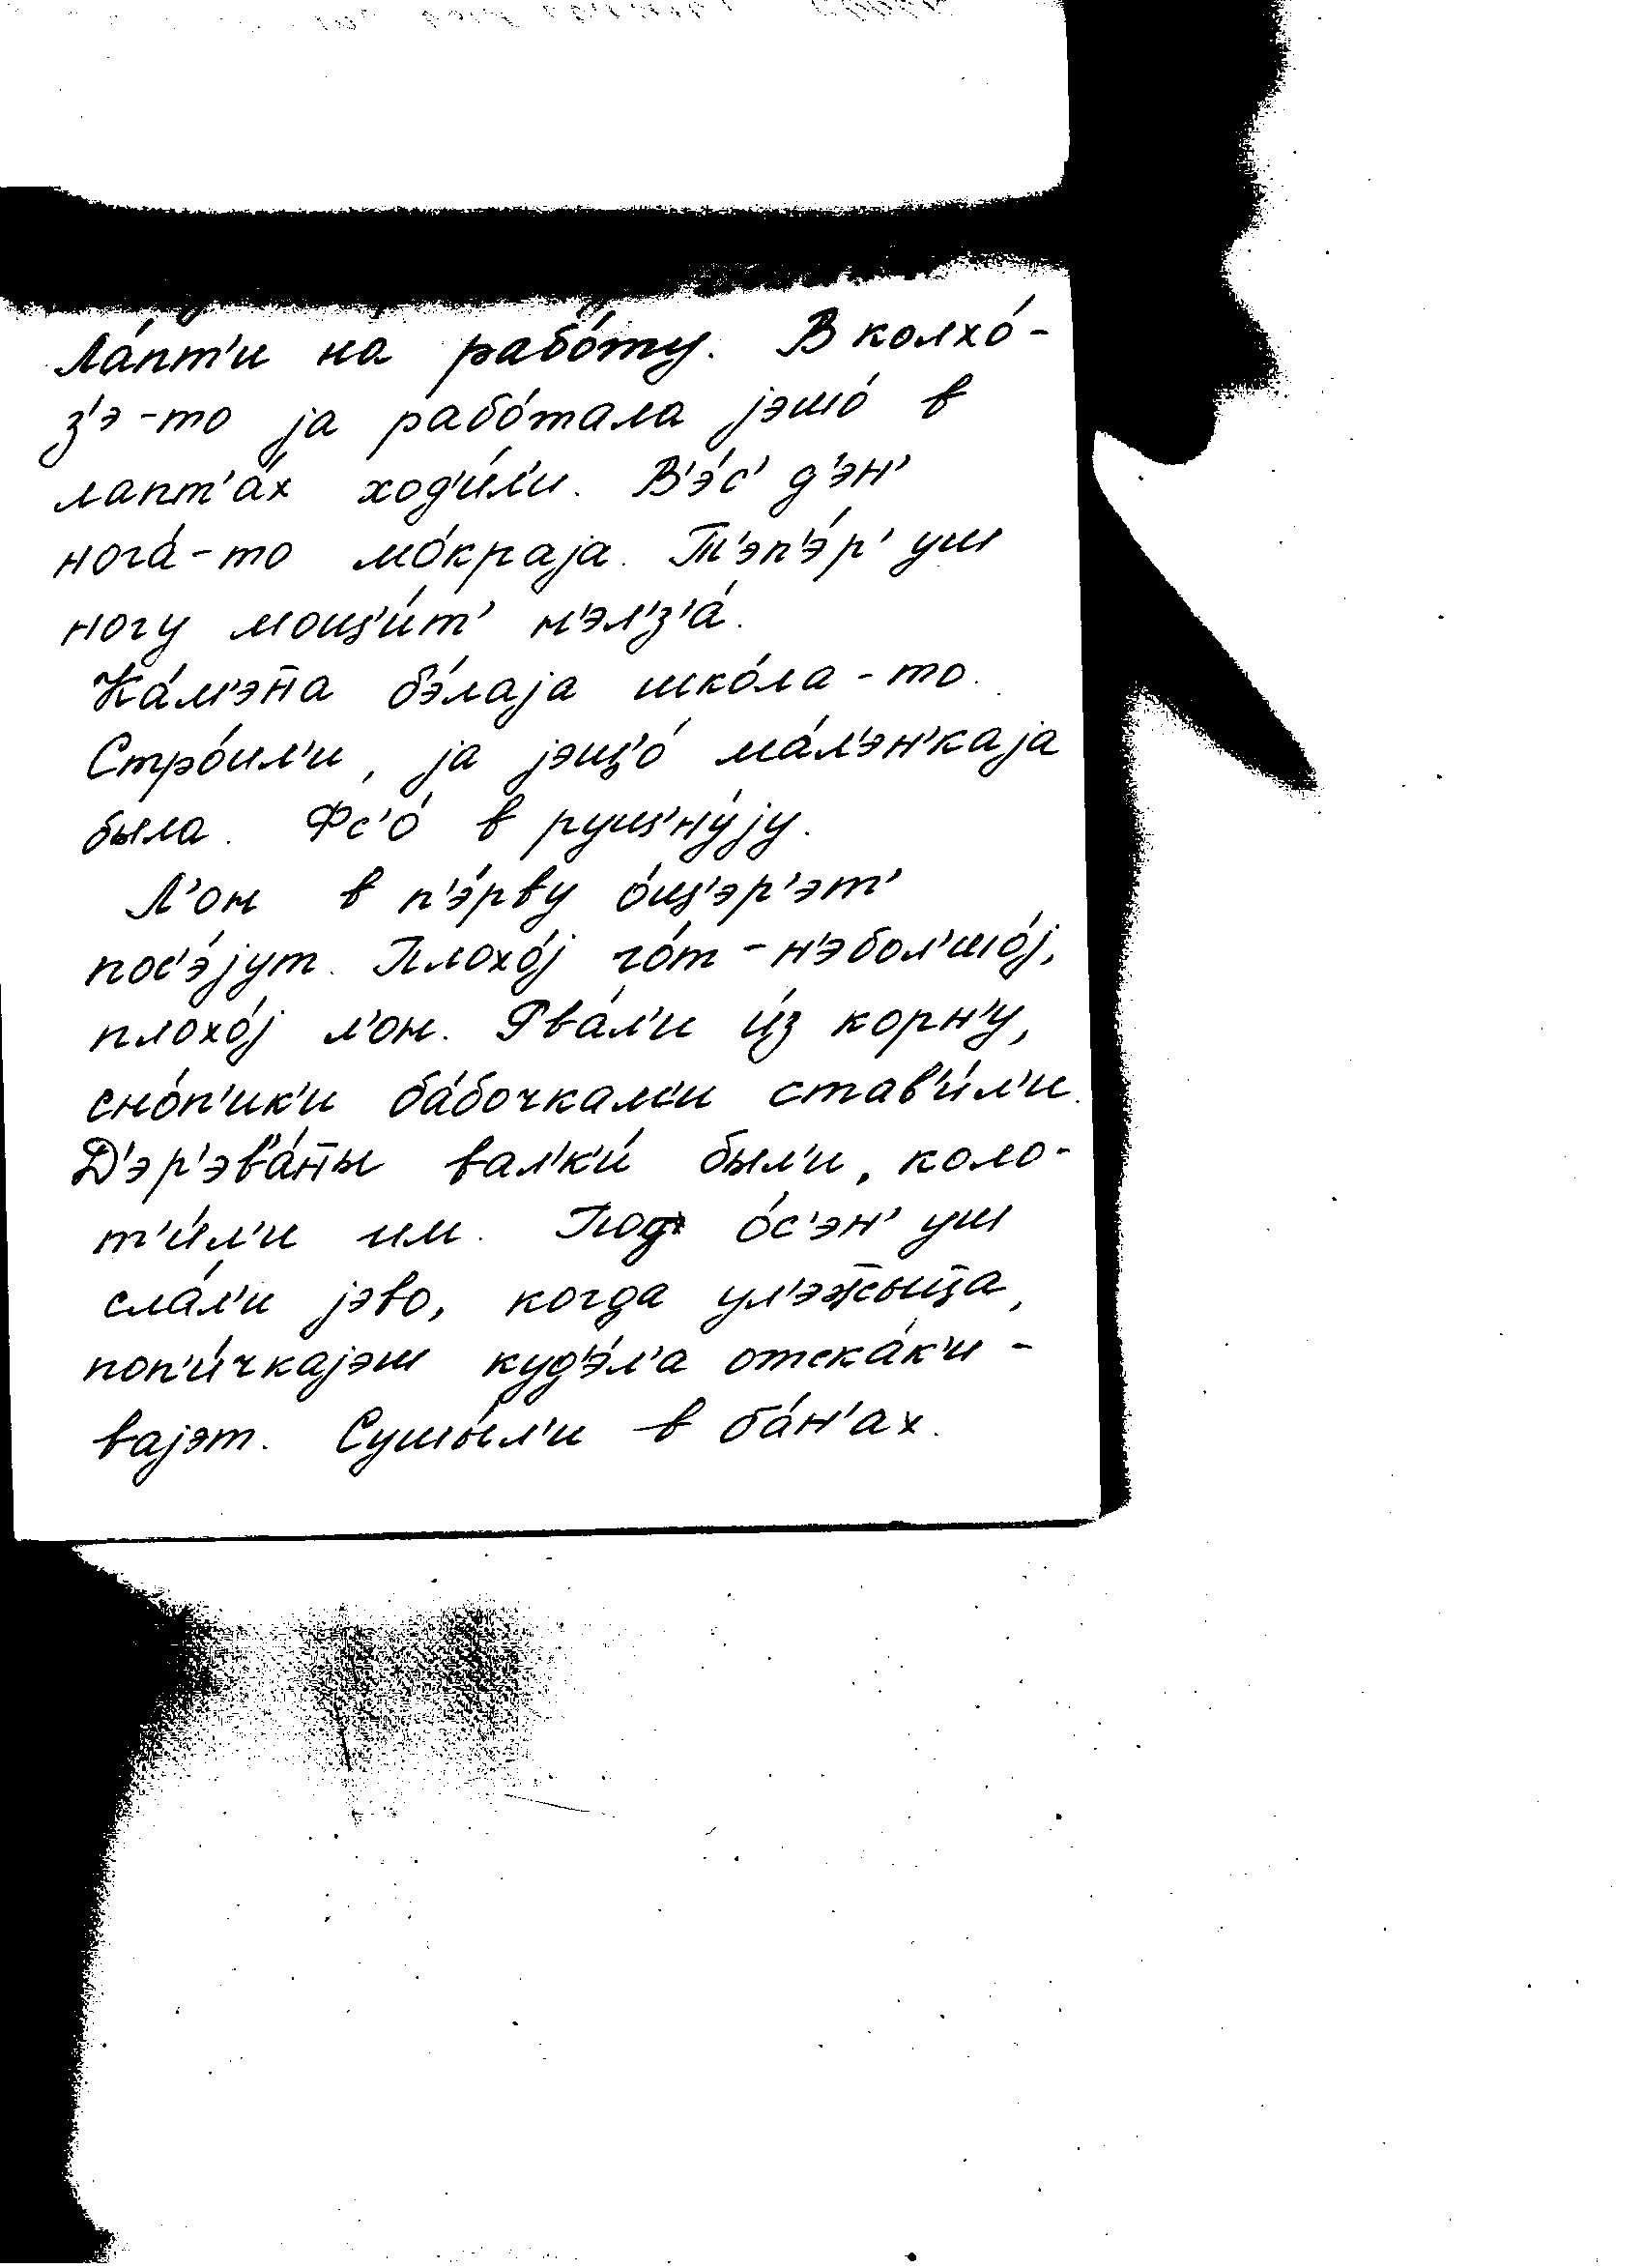 Ла́пт'и на́ рабо́ту. В колхо́-
з'э-то ја рабо́тала јэшо́ в
лапт'а́х ход'и́л'и. В'э́с' д'эн'
нога́-то мо́краја. Т'эп'э́р' уш
ногу моц'и́т' н'эл'з'а́.
Ка́м'эн̄а бэ́лаја шко́ла-то.
Стро́ил'и, ја јэщо́ ма́л'эн'каја
была. Фс'о́ в руц'ну́ју.
Л'он в п'э́рву о́ц'эр'эт'
пос'э́јут. Плохо́ј го́т - н'эбол'шо́ј,
плохо́ј л'он. Рва́л'и и́з корн'у,
сно́п'ик'и ба́бочкам'и став'и́л'и.
Д'эр'эв'а́н̄ы вал'к'и́ был'и, коло-
т'и́л'и им. Под о́с'эн' уш
сла́л'и јэво, когда ул'эжыц̄а,
поп'и́чкајэш куд'э́л'а отска́к'и-
вајэт. Сушы́л'и в ба́н'ах.